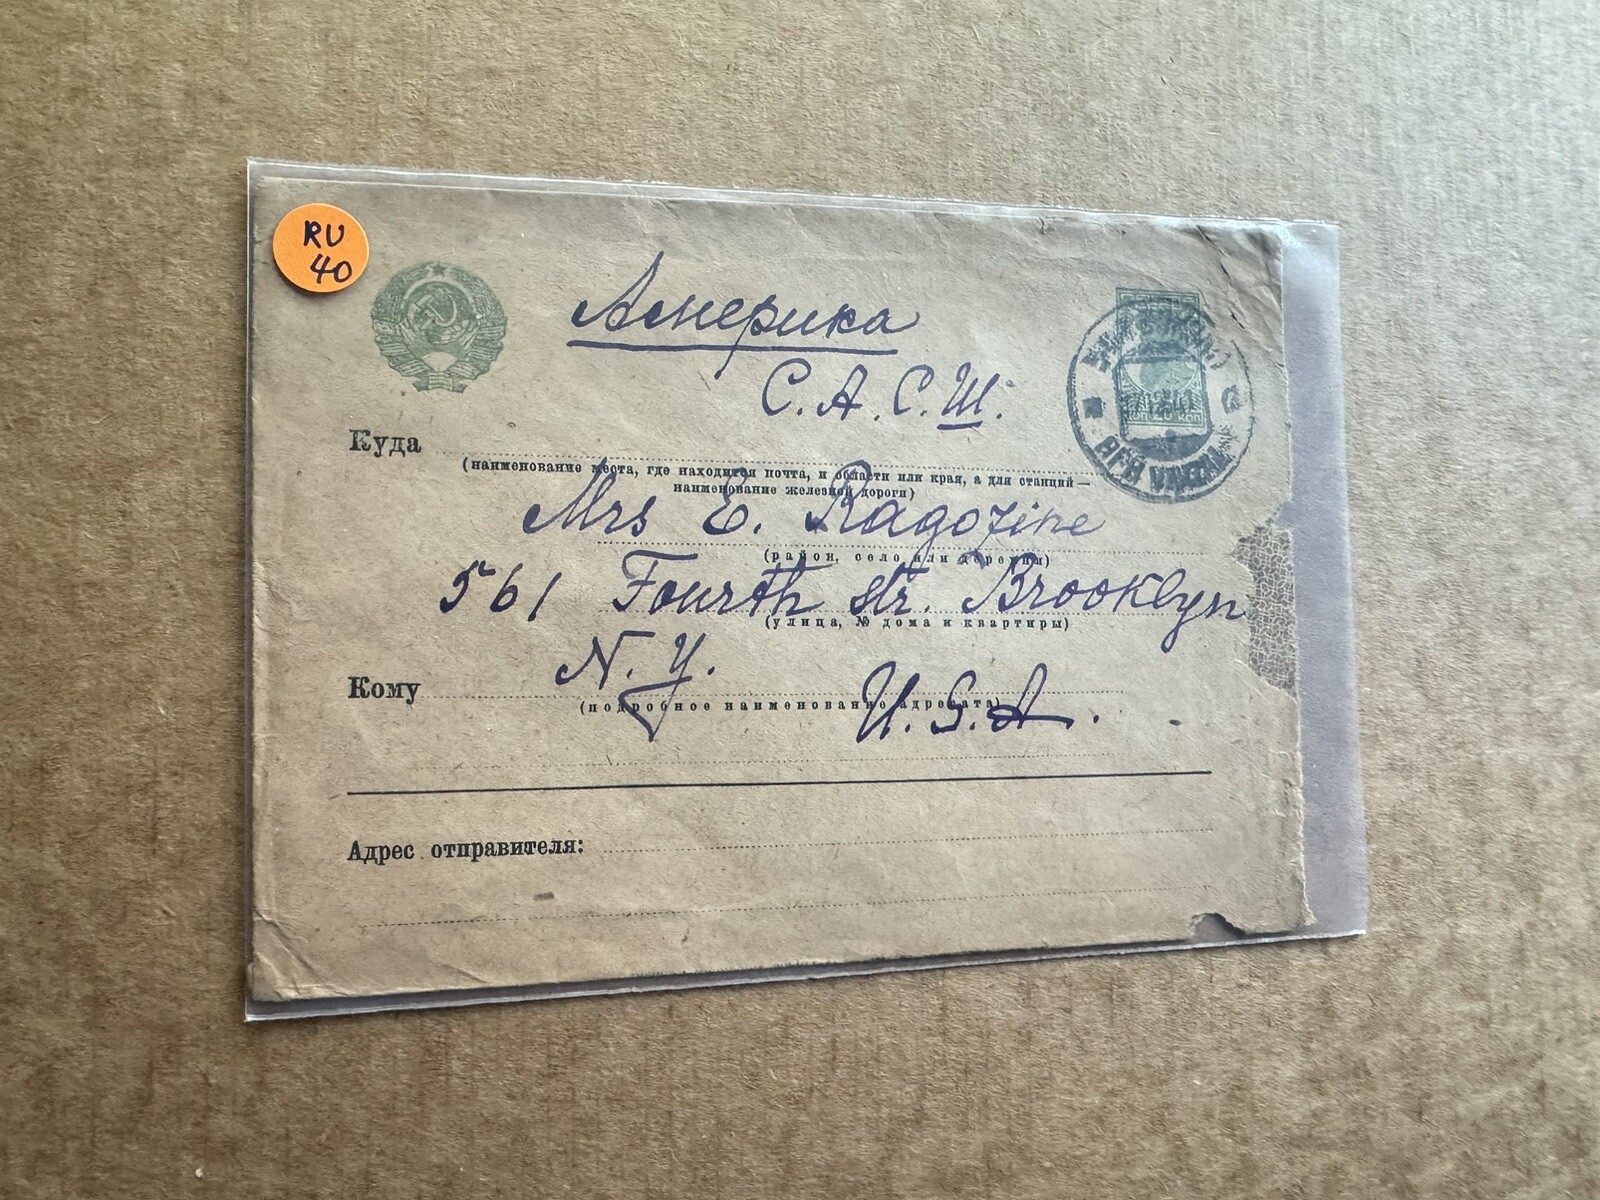 RU
40
Америка
С.А.С.Ш.
Куда
(наименование места, где находится почта, и области или края, а для станций—
наименование железной дороги)
Mrs E. Ragozine
(район, село или деревня)
561 Fourth str. Brooklyn
(улица, № дома и квартиры)
N.Y.
Кому
(подробное наименование адресата)
U.S.A.
Адрес отправителя: